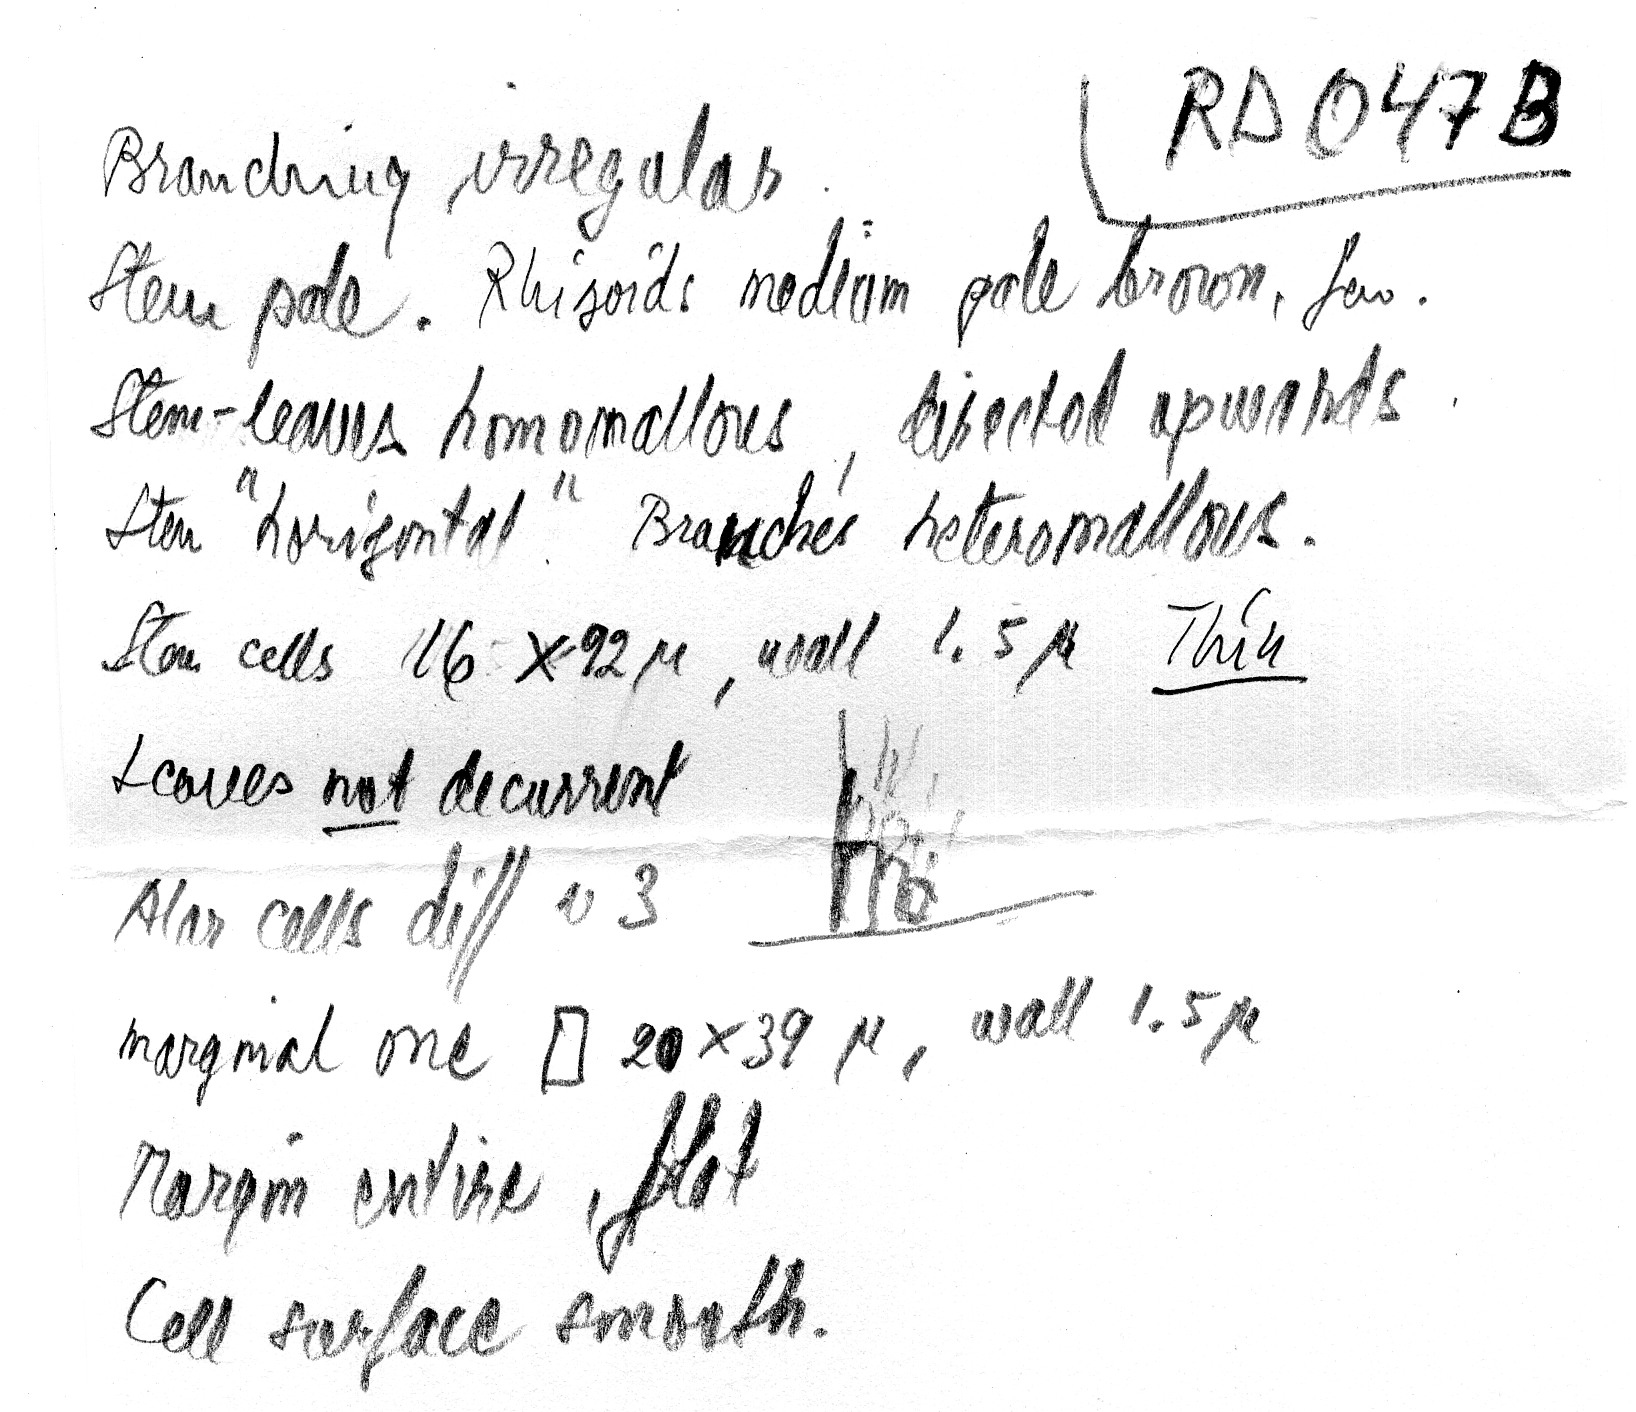 RD047B
Branching irregular.
Stem pale. Rhizoids medium pale brown, few.
Stem-leaves homomallous, directed upwards.
Stem "horizontal". Branches heteromallous.
Stem cells 16 × 92 µ, wall 1.5 µ Thin
Leaves not decurrent
Alar cells diff 3
marginal one 20 × 39 µ, wall 1.5 µ
Margin entire, flat
Cell surface smooth.